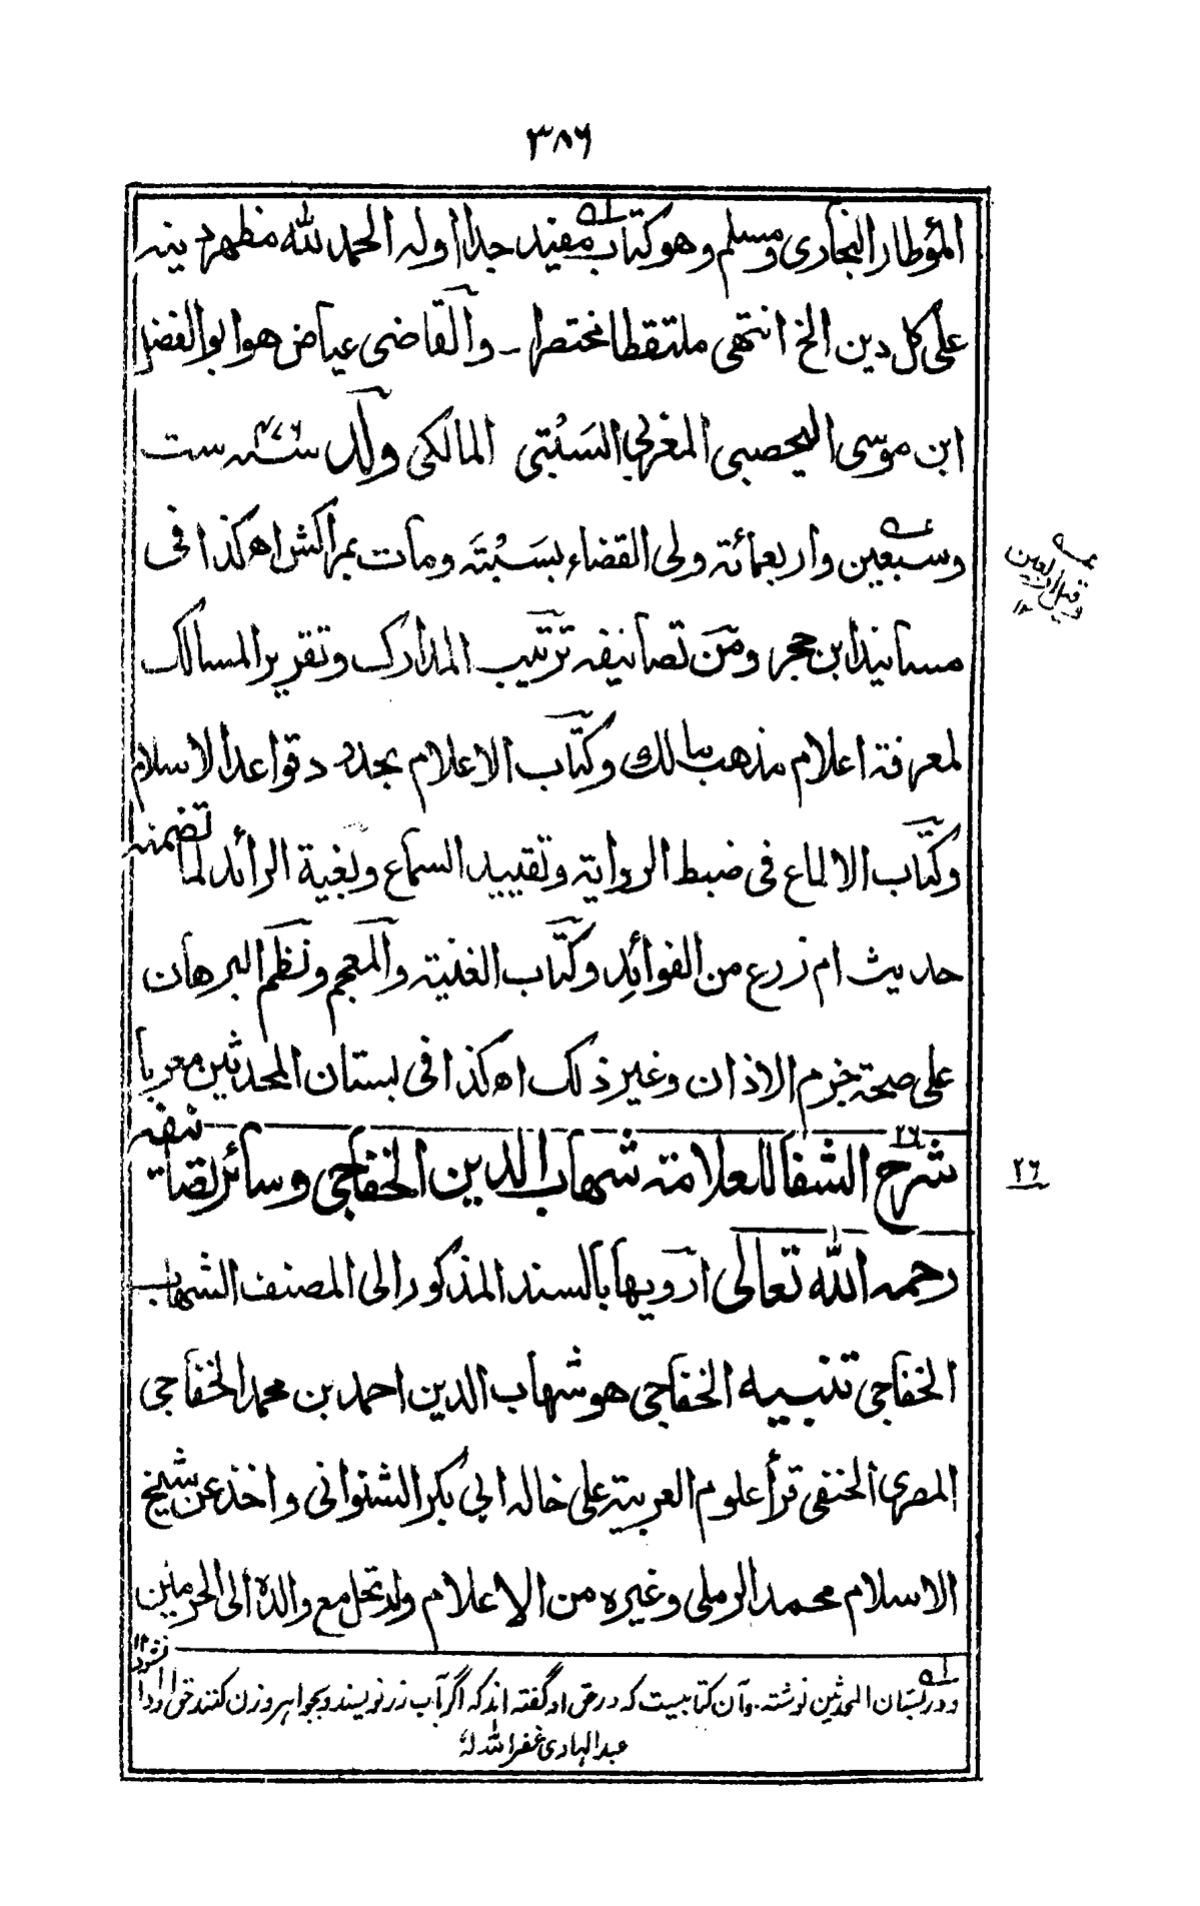 ۳۸۶
المؤطا والبخاری ومسلم وهو کتاب مفید جدا اوله الحمد لله مظهر دینه
علی کل دین الخ انتهی ملتقطا مختصرا - والقاضی عیاض هو ابو الفضل
ابن موسی الیحصبی المغربی السَبْتِی المالکی ولد سنه ۴۷۶ ست
وسبعین واربعمائة ولی القضاء بسَبْتَه ومات بمراکش اه کذا فی
مسانید ابن حجر ومن تصانیفه ترتیب المدارک وتقریر المسالک
لمعرفة اعلام مذهب مالک وکتاب الاعلام بحدود قواعد الاسلام
وکتاب الالماع فی ضبط الروایة وتقیید السماع وبغیة الرائد لما تضمنه
حدیث ام زرع من الفوائد وکتاب الغنیة والمعجم ونظم البرهان
علی صحة جزم الاذان وغیر ذلک اه کذا فی بستان المحدثین معربا
شرح الشفا للعلامة شهاب الدین الخفاجی وسائر تصانیفه
۲۶
رحمه الله تعالی ارویها بالسند المذکور الی المصنف الشهاب
الخفاجی تنبیه الخفاجی هو شهاب الدین احمد بن محمد الخفاجی
المصری الحنفی قرأ علوم العربیة علی خاله ابی بکر الشنوانی واخذ عن شیخ
الاسلام محمد الرملی وغیره من الاعلام وارتحل مع والده الی الحرمین
ودر بستان المحدثین نوشته وآن کتابیست که در حق او گفته اند که اگر بآب زر نویسند وبجواهر وزن کنند حق او ادا نشود ۱۲
عبد الهادی غفر الله له